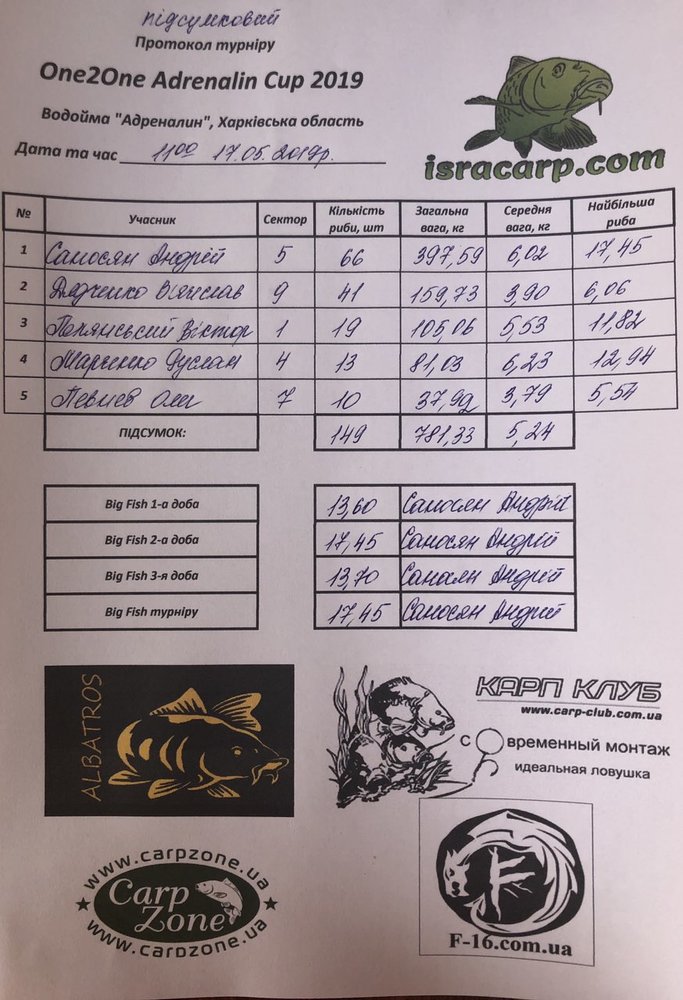 підсумковий
Протокол турніру
One2One Adrenalin Cup 2019
Водойма "Адреналин", Харківська область
Дата та час 11⁰⁰ 17.05.2019р.
isracarp.com
№ Учасник Сектор Кількість риби, шт Загальна вага, кг Середня вага, кг Найбільша риба
1 Саносян Андрій 5 66 397,59 6,02 17,45
2 Дядченко Вячислав 9 41 159,73 3,90 6,06
3 Полянський Віктор 1 19 105,06 5,53 11,82
4 Марченко Руслан 4 13 81,03 6,23 12,94
5 Певнев Олег 7 10 37,92 3,79 5,54
ПІДСУМОК: 149 781,33 5,24
Big Fish 1-а доба 13,60 Саносян Андрій
Big Fish 2-а доба 17,45 Саносян Андрій
Big Fish 3-я доба 13,70 Саносян Андрій
Big Fish турніру 17,45 Саносян Андрій
ALBATROS
КАРП КЛУБ
www.carp-club.com.ua
современный монтаж
идеальная ловушка
www.carpzone.ua
Carp Zone
www.carpzone.ua
F-16.com.ua